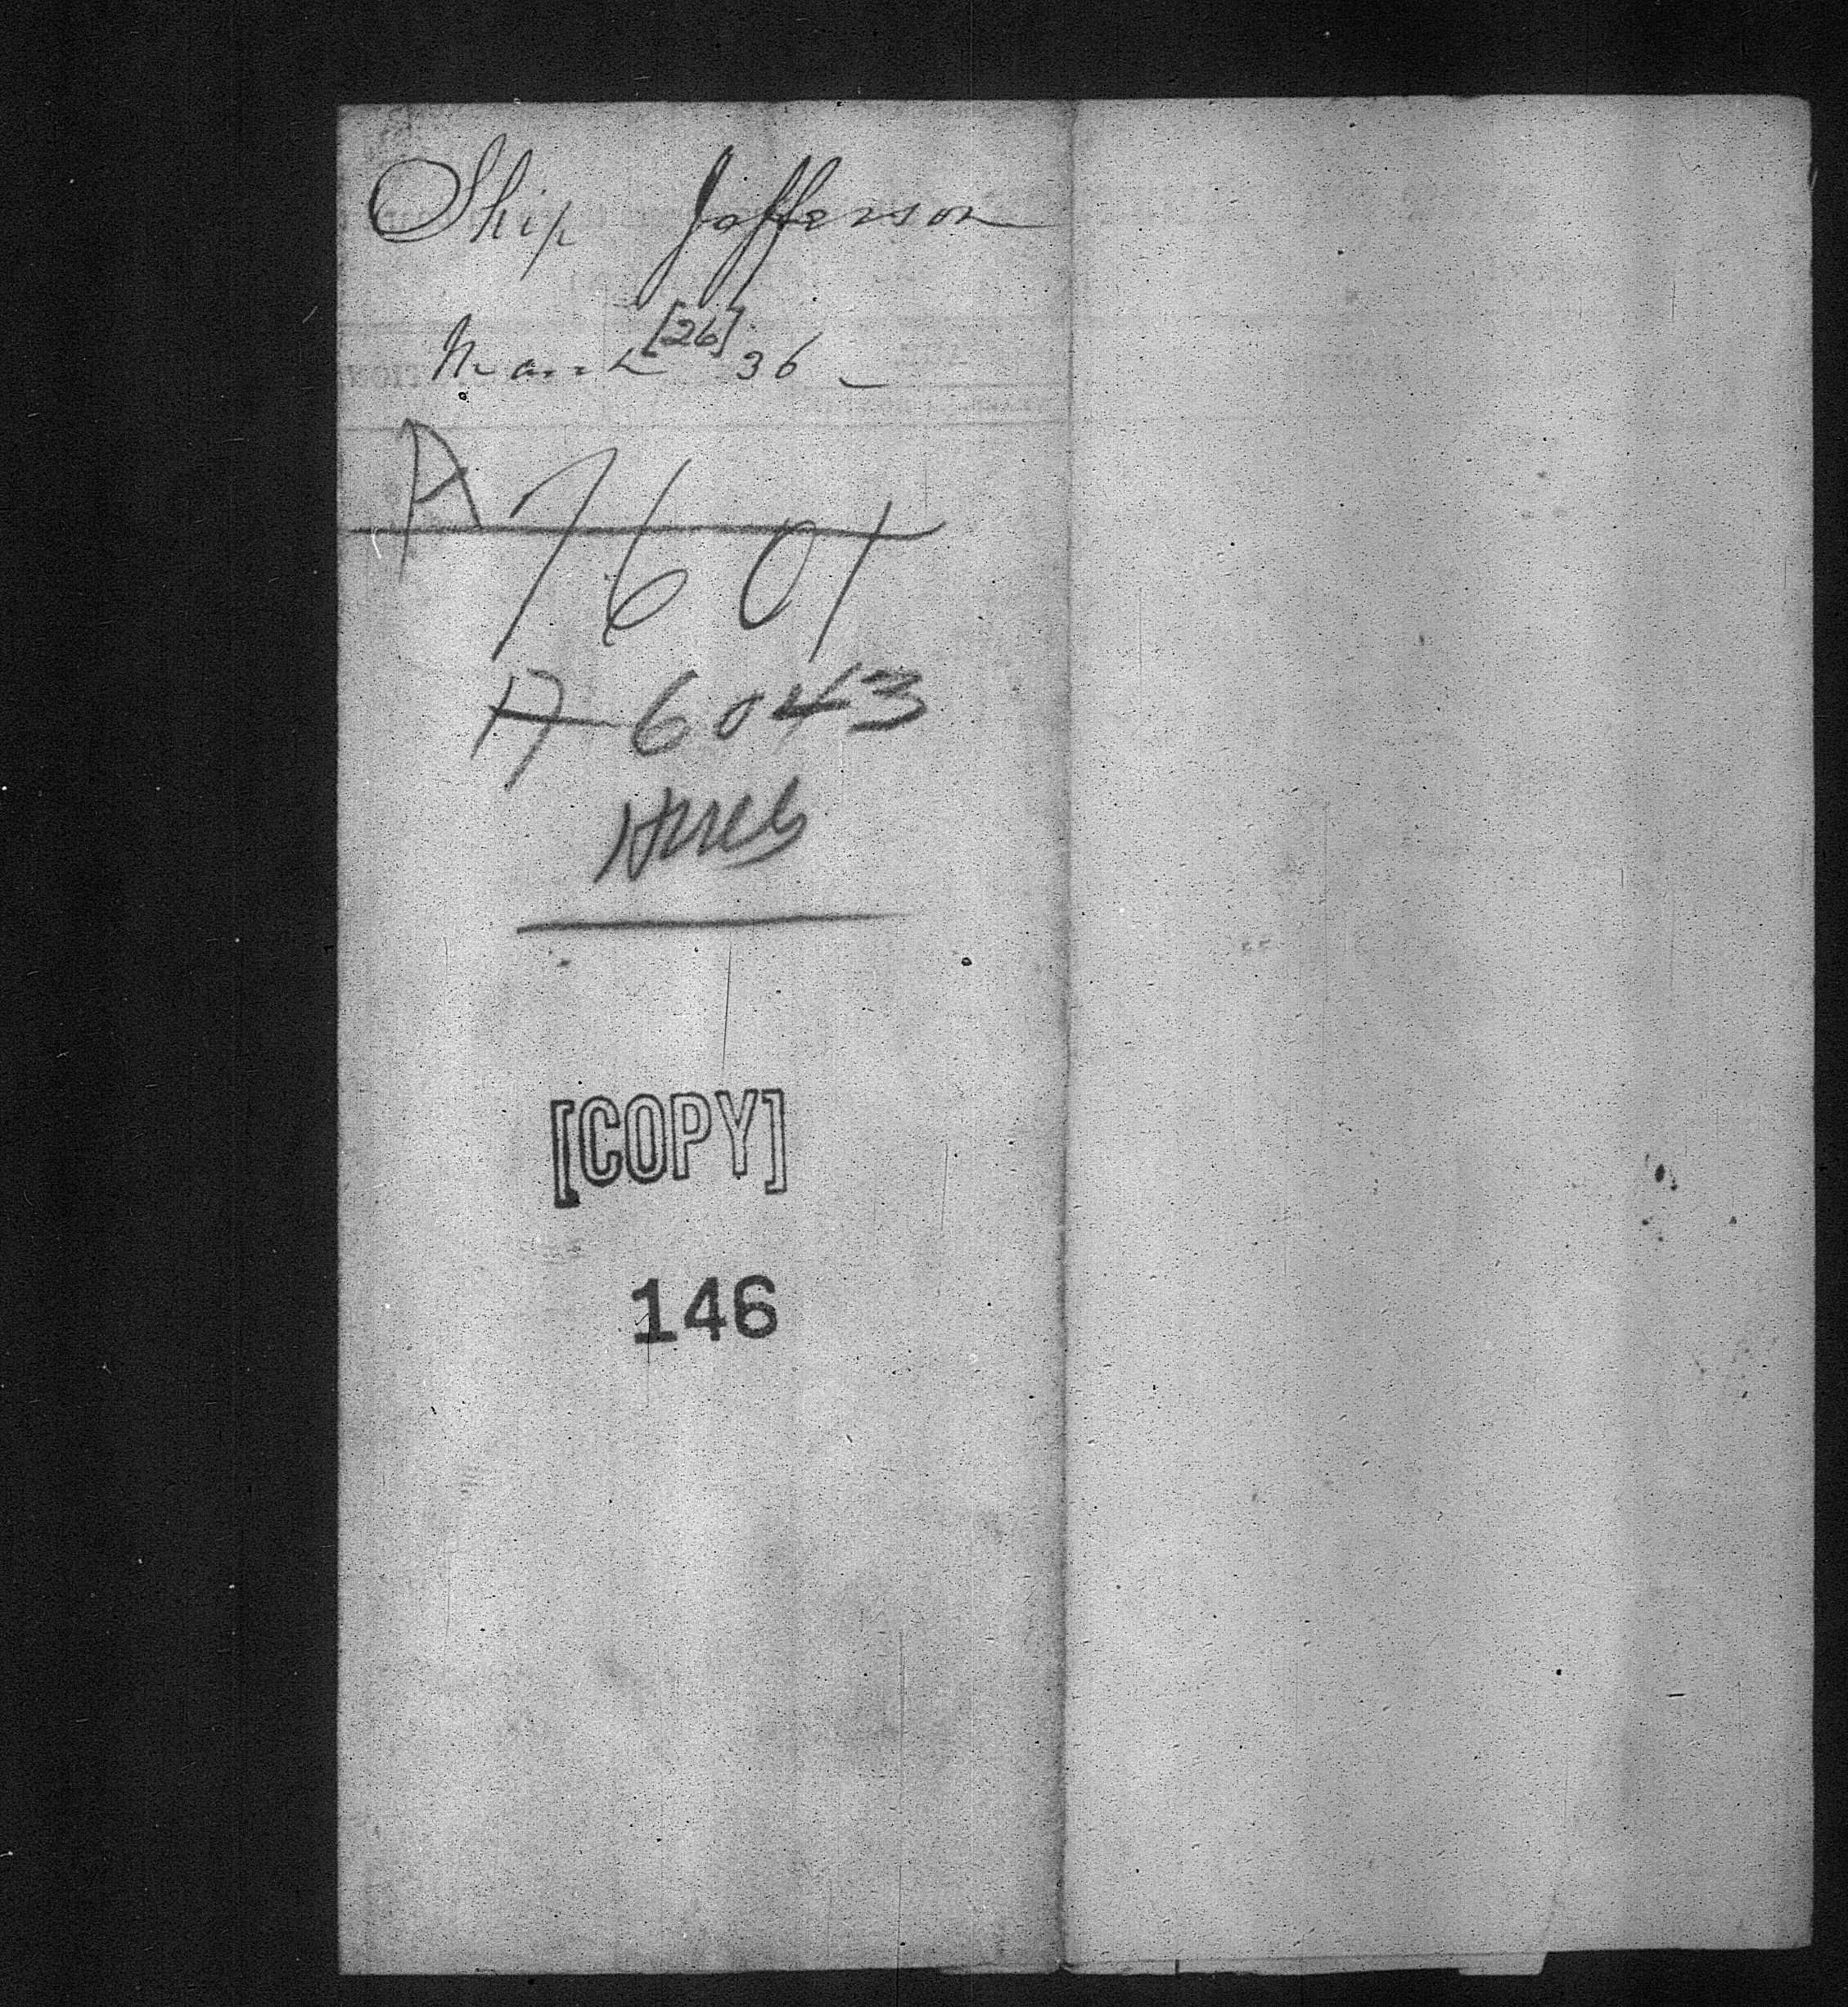 Ship Jefferson
March [26] 36 -
A 7601
A 6043
[COPY]
146